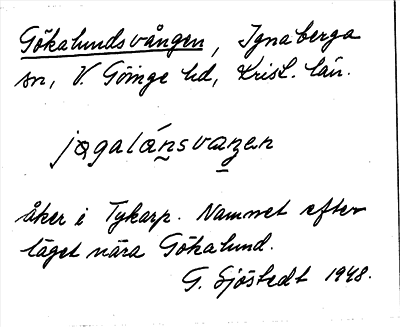 Gökalundsvången, Ignaberga
sn, V. Göinge hd, Krist. län.
jøgalánsvaŋen
åker i Tykarp. Namnet efter
läget nära Gökalund.
G. Sjöstedt 1948.